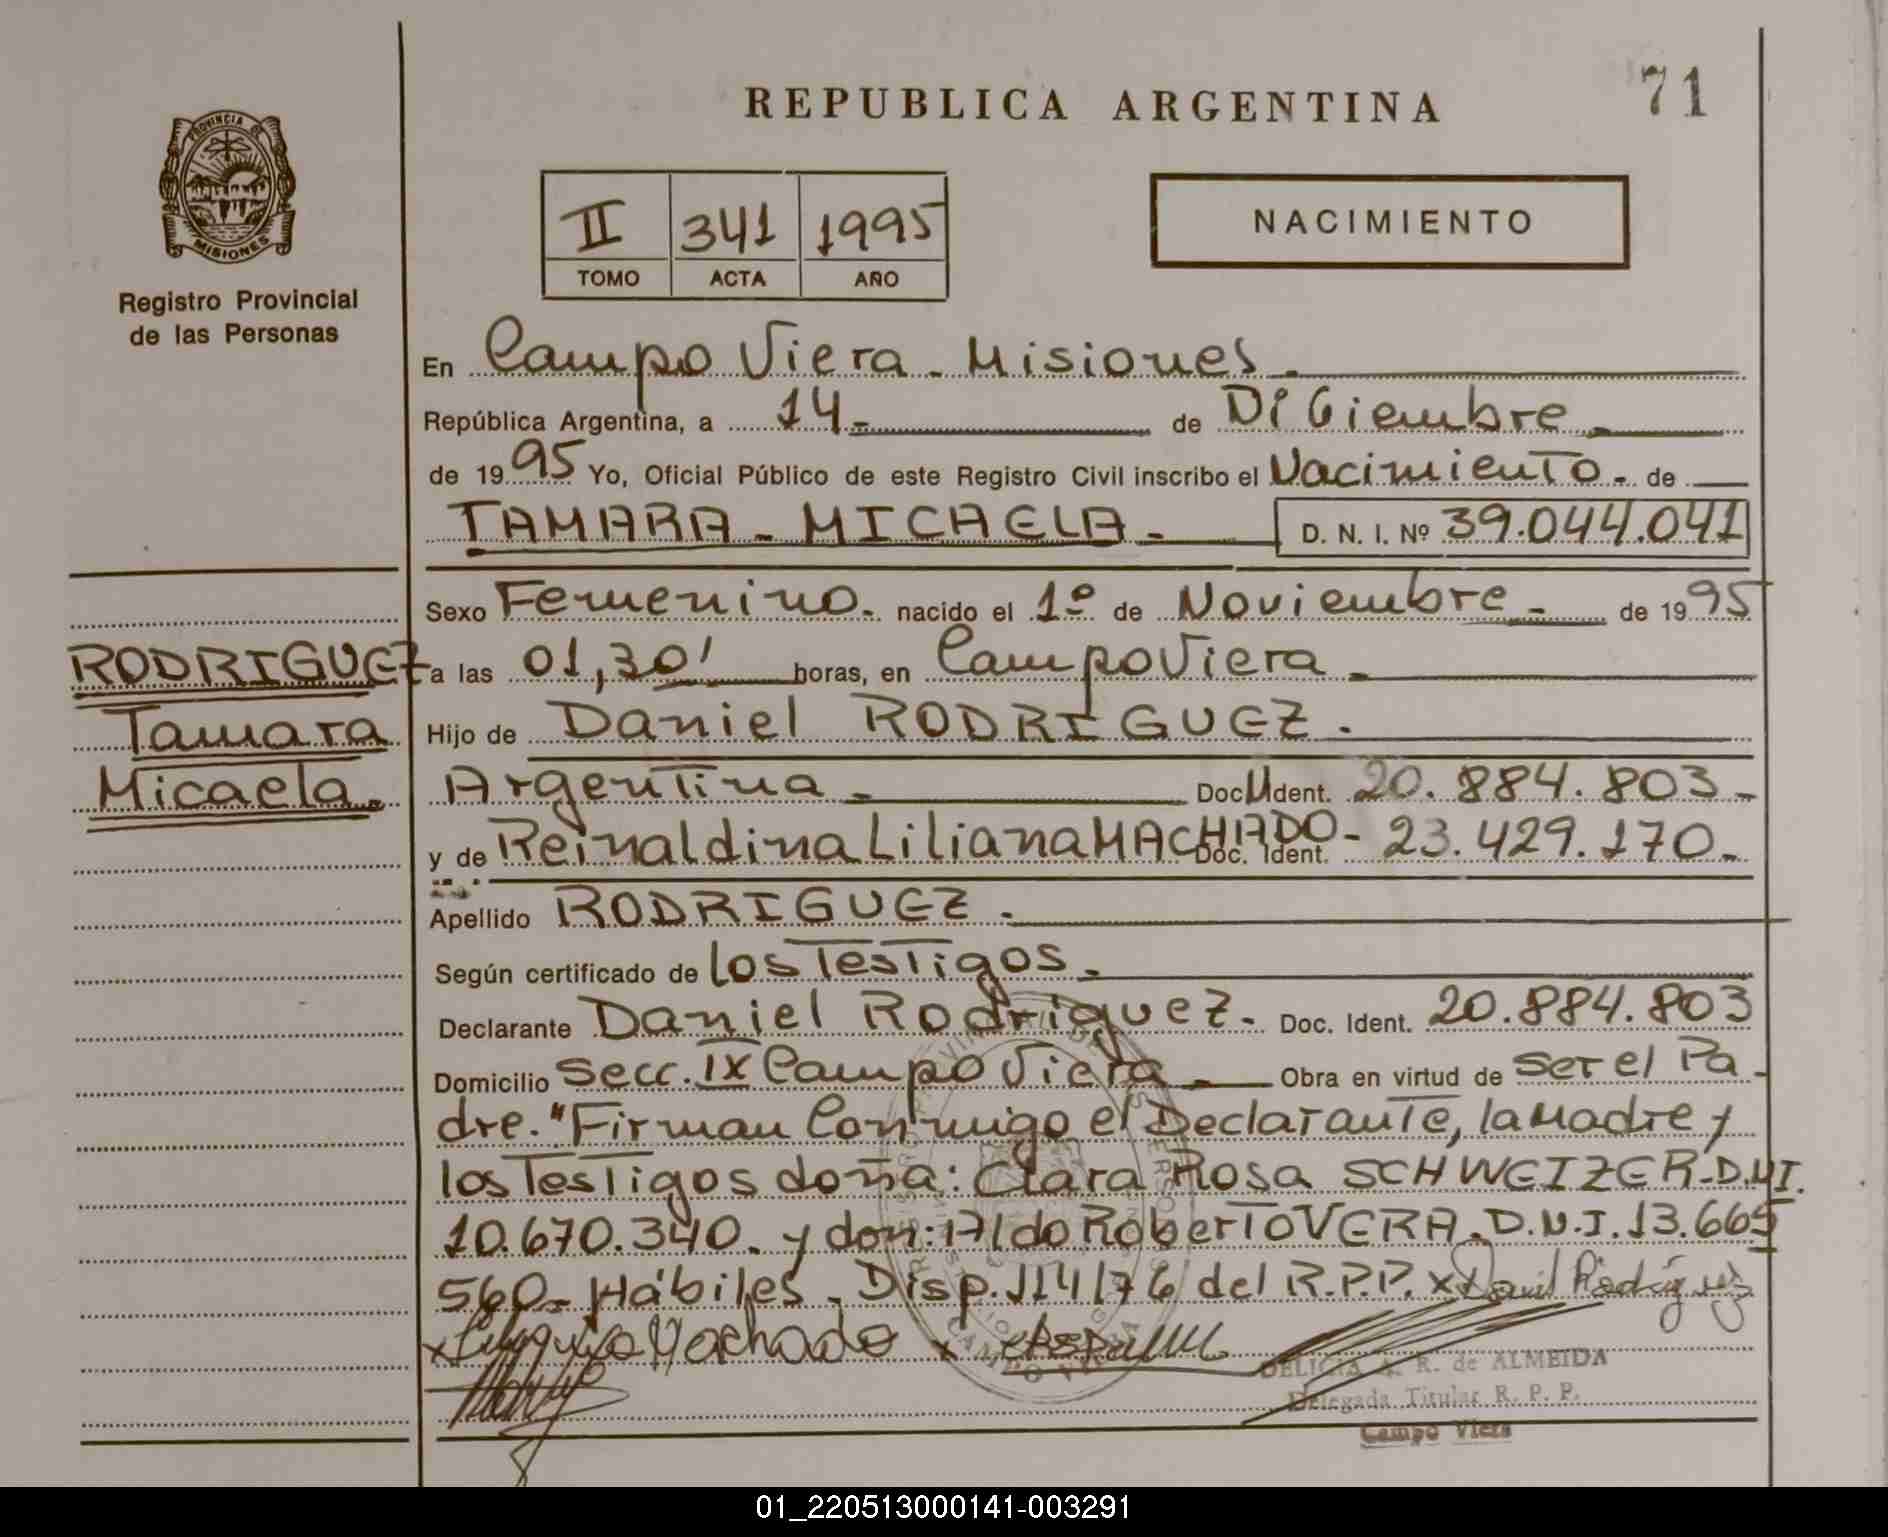 REPUBLICA ARGENTINA
71
PROVINCIA DE
MISIONES
Registro Provincial
de las Personas
II 341 1995
TOMO ACTA AÑO
NACIMIENTO
En Campo Viera - Misiones -
República Argentina, a 14- de DiCiembre -
de 1995 Yo, Oficial Público de este Registro Civil inscribo el Nacimiento - de
TAMARA - MICAELA - D. N. I. Nº 39.044.041
Sexo Femenino. nacido el 1º de Noviembre - de 1995
RODRIGUEZ
Tamara
Micaela.
a las 01,30' horas, en Campo Viera -
Hijo de Daniel RODRIGUEZ.
Argentina - Doc. Ident. 20.884.803-
y de Reinaldina Liliana MACHADO- Doc. Ident. 23.429.170-
Apellido RODRIGUEZ.
Según certificado de los Testigos -
Declarante Daniel Rodriguez. Doc. Ident. 20.884.803
Domicilio Secc. IX Campo Viera - Obra en virtud de ser el Pa-
dre. "Firman Conmigo el Declarante, la Madre y
los Testigos doña: Clara Rosa SCHWEIZER-D.NI.
10.670.340. y don: Aldo Roberto VERA. D.N.I. 13.665
560- Hábiles - Disp. 114/76 del R.P.P. x
Machado x
DELICIA A. R. de ALMEIDA
Delegada Titular R. P. P.
Campo Viera
01_220513000141-003291